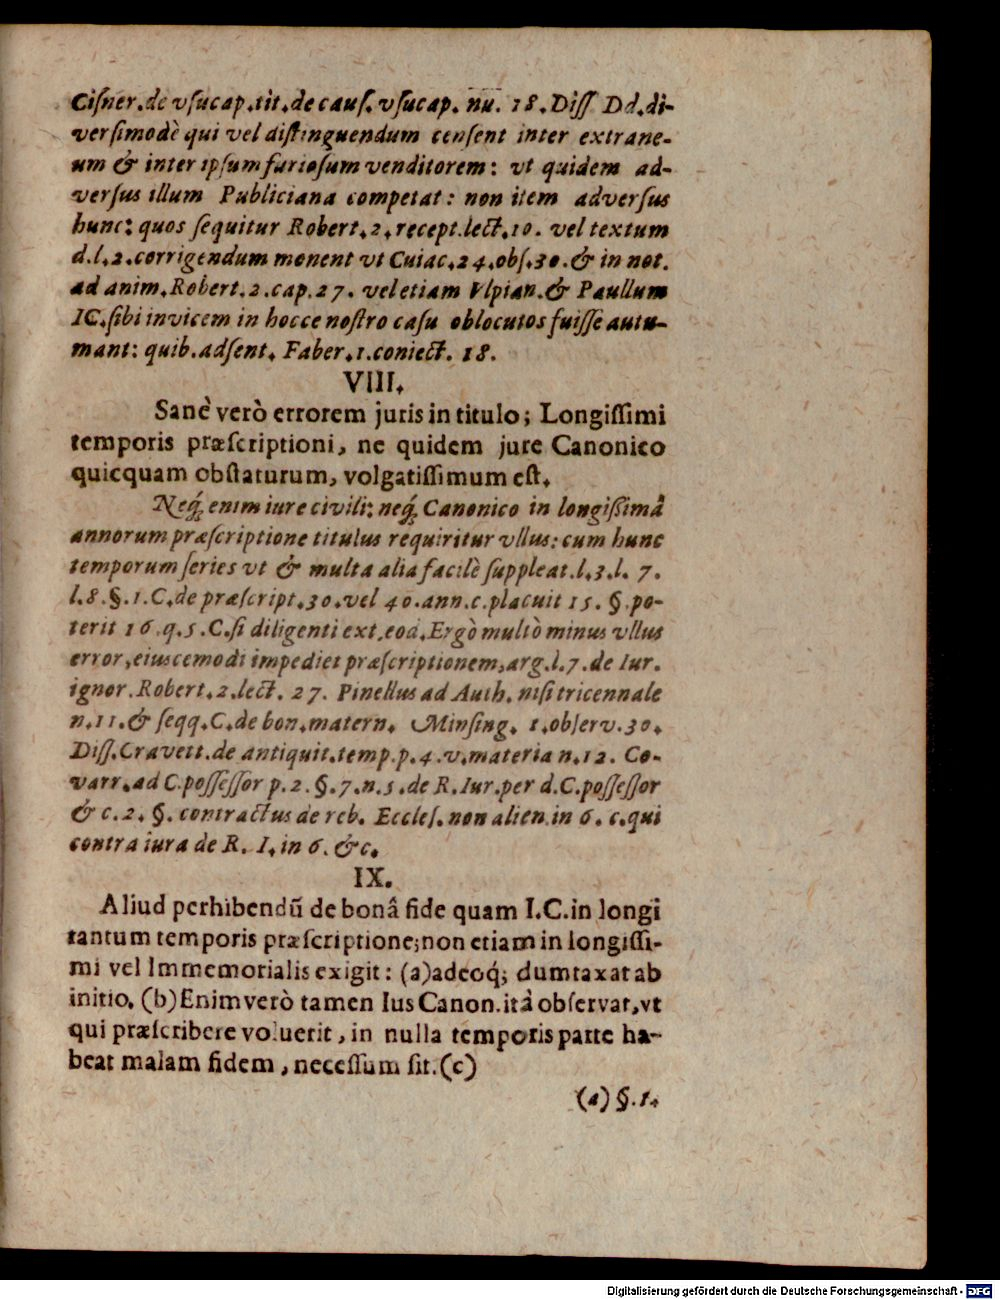 Ciſner.de vſucap.tit.de cauſ. vſucap. nu. 18. Diſſ Dd.di-
verſimodè qui vel diſtinguendum cenſent inter extrane-
um & inter ipſum furioſum venditorem: vt quidem ad-
verſus illum Publiciana competat: non item adverſus
hunc: quos ſequitur Robert. 2. recept.lect. 10. vel textum
d.l. 2. corrigendum monent vt Cuiac. 24. obſ. 30. & in not.
ad anim. Robert. 2. cap. 27. vel etiam Vlpian. & Paullum
IC. ſibi invicem in hocce noſtro caſu oblocutos fuiſſe autu-
mant: quib. adſent. Faber. 1. coniect. 18.
VIII.
Sanè verò errorem juris in titulo; Longiſſimi
temporis præſcriptioni, ne quidem jure Canonico
quicquam obſtaturum, volgatiſſimum eſt.
Neq́; enim iure civili: neq́; Canonico in longißimâ
annorum præſcriptione titulus requiritur vllus: cum hunc
temporum ſeries vt & multa alia facilè ſuppleat.l. 3. l. 7.
l. 8. §. 1. C. de præſcript. 30. vel 40. ann. c. placuit 15. §. po-
terit 16. q. 5. C. ſi diligenti ext. eod. Ergò multò minus vllus
error, eiuscemodi impediet præſcriptionem, arg. l. 7. de Iur.
ignor. Robert. 2. lect. 27. Pinellus ad Auth. niſi tricennale
n. 11. & ſeqq. C. de bon. matern. Minſing. 1. obſerv. 30.
Diſſ. Cravett. de antiquit. temp. p. 4. v. materia n. 12. Co-
varr. ad C. poſſeſſor p. 2. §. 7. n. 5. de R. Iur. per d. C. poſſeſſor
& c. 2. §. contractus de reb. Eccleſ. non alien. in 6. c. qui
contra iura de R. I. in 6. &c.
IX.
Aliud perhibendũ de bonâ fide quam I.C. in longi
tantum temporis præſcriptione; non etiam in longiſſi-
mi vel Immemorialis exigit: (a) adeoq́; dumtaxat ab
initio. (b) Enimverò tamen Ius Canon. ità obſervat, vt
qui præſcribere voluerit, in nulla temporis parte ha-
beat malam fidem, neceſſum ſit. (c)
(a) §. 1.
Digitalisierung gefördert durch die Deutsche Forschungsgemeinschaft - DFG